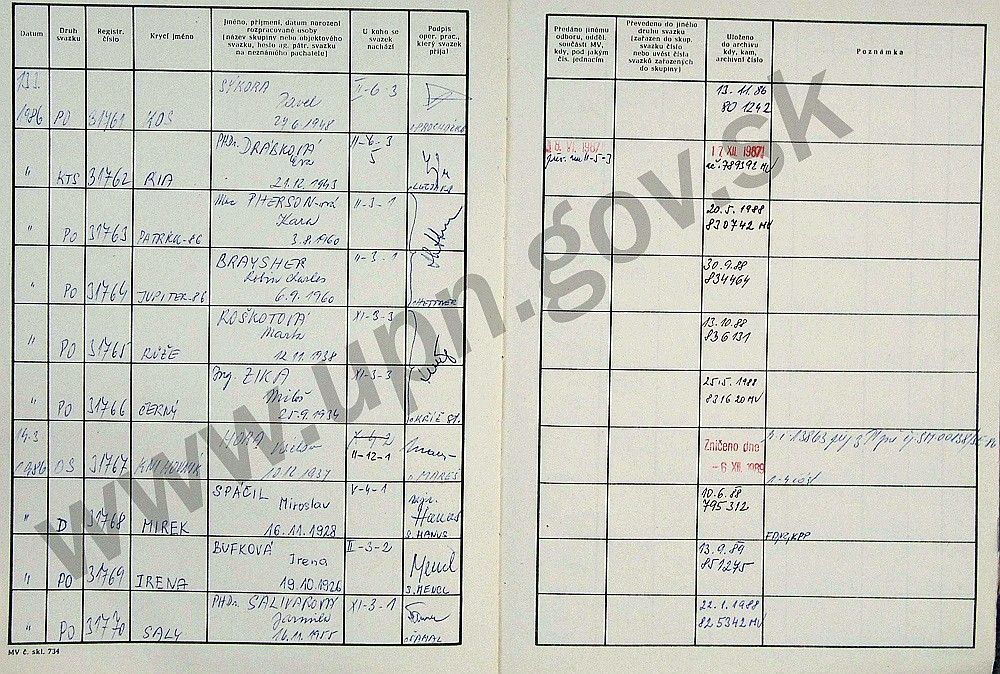 Datum
Druh svazku
Registr. číslo
Krycí jméno
Jméno, příjmení, datum narození rozpracované osoby (název skupiny nebo objektového svazku, heslo ag. pátr. svazku na neznámého pachatele)
U koho se svazek nachází
Podpis oper. prac., který svazek přijal
Předáno jinému odboru, odděl. součásti MV, kdy, pod jakým čís. jednacím
Převedeno do jiného druhu svazku (zařazen do skup. svazku číslo nebo uvést čísla svazků zařazených do skupiny)
Uloženo do archivu kdy, kam, archivní číslo
Poznámka
13.3. 1986 PO 31761 KOS SÝKORA Pavel 27.6.1948 II-6-3
13.11.86
801242
" KTS 31762 RIA PHDr. DRÁBKOVÁ Eva 21.12.1943 II-6-3 5
II-5-3
17 XII. 1987
789392 MV
" PO 31763 PATRIK-86 Mac PHERSON-ová Kara 3.8.1960 II-3-1
20.5.1988
830742 MV
" PO 31764 JUPITER-86 BRAYSHER Robin Charles 6.9.1960 II-3-1
30.9.88
834464
" PO 31765 RŮŽE ROŠKOTOVÁ Marta 12.11.1938 XI-3-3
13.10.88
836131
" PO 31766 ČERNÝ Ing. ZIKA Miloš 25.9.1934 XI-3-3
25.5.1988
831620 MV
14.3 1986 OS 31767 HORA Václav 10.12.1937 II-12-1 MAREŠ
Zničeno dne
- 6 XII. 1989
" D 31768 MIREK SPÁČIL Miroslav 16.11.1928 V-4-1 Hanus S. HANUS
10.6.88
795312
" PO 31769 IRENA BUFKOVÁ Irena 19.10.1926 II-3-2 Mencl S. MENCL
13.9.89
851275
" PO 31770 SALY PHDr. SALIVAROVÁ Jarmila 16.11.1955 XI-3-1
22.1.1988
825342 MV
MV č. skl. 734
www.upn.gov.sk